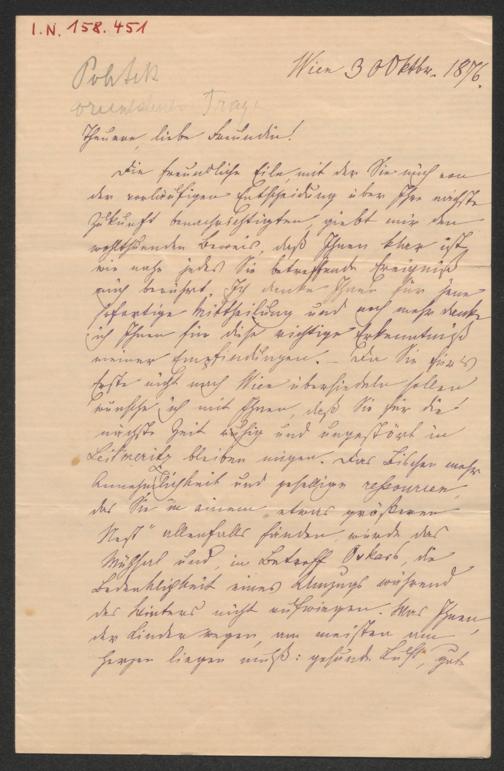 I.N. 158.451
Politik
orientalische Frage
Wien 30 Oktbr. 1876.
Theuere, liebe Freundin!
Die freundliche Eile, mit der Sie mich von
der vorläufigen Entscheidung über Ihre nächste
Zukunft benachrichtigten, giebt mir den
wohlthuenden Beweis, daß Ihnen klar ist,
wie nahe jedes Sie betreffende Ereigniß
mich berührt. Ich danke Ihnen für jene
sofortige Mittheilung und noch mehr danke
ich Ihnen für diese richtige Erkenntniß
meiner Empfindungen. – Da Sie für's
Erste nicht nach Wien übersiedeln sollen
wünsche ich mit Ihnen, daß Sie für die
nächste Zeit ruhig und ungestört in
Leitmeritz bleiben mögen. Das Bischen mehr
Annehmlichkeit und gesellige ressourcen,
das Sie in einem „etwas größeren
Nest" allenfalls fänden, würde das
Mühsal und, in Betreff Oskars, die
Bedenklichkeit eines Umzugs während
des Winters nicht aufwiegen. Was Ihnen,
der Kinder wegen, am meisten am
Herzen liegen muß: gesunde Luft, gute